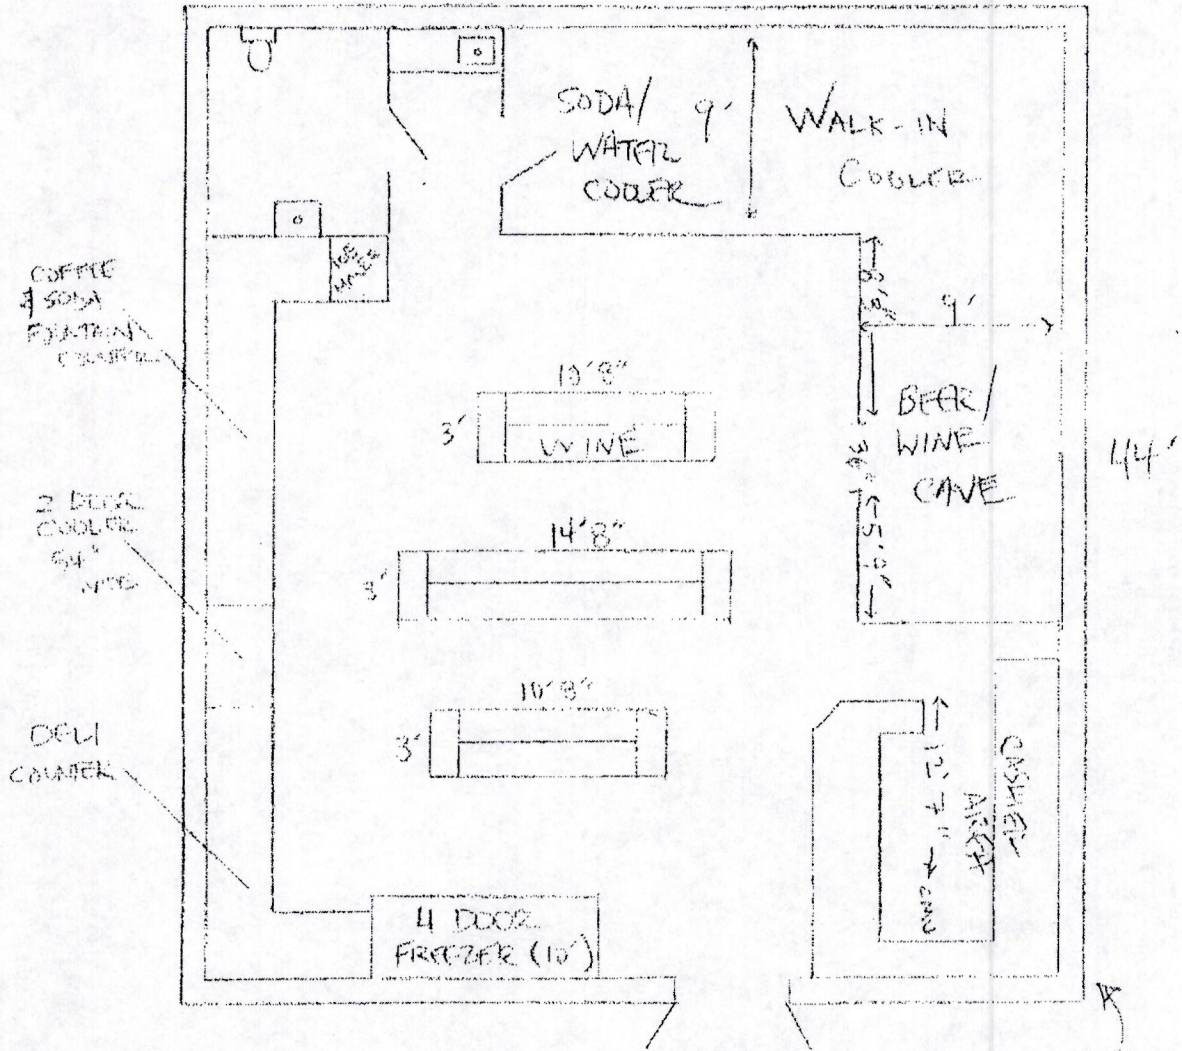 SODA/
WATER
COOLER
9'
WALK-IN
COOLER
ICE
MAKER
COFFEE
& SODA
FOUNTAIN
COUNTER
9'
10'8"
3'
WINE
BEER/
WINE
CAVE
36"
5'9"
44'
2 DOOR
COOLER
54"
14'8"
3'
10'8"
3'
DELI
COUNTER
CASHIER
AREA
12' 7"
4 DOOR
FREEZER (10')